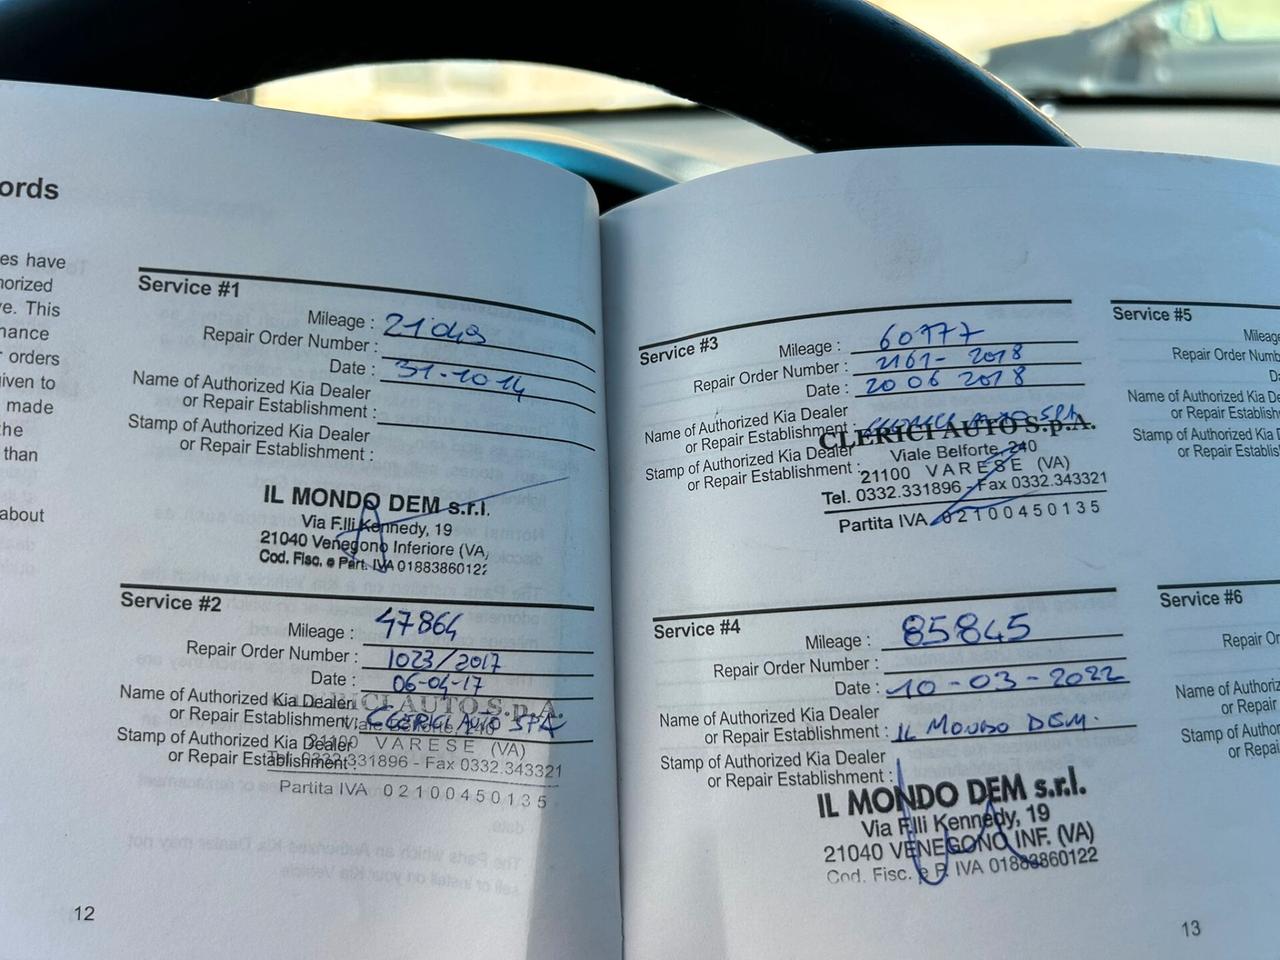 ords
es have
horized
e. This
nance
r orders
given to
made
the
than
about
Service #1
Mileage : 21049
Repair Order Number :
Date : 31-10-14
Name of Authorized Kia Dealer
or Repair Establishment :
Stamp of Authorized Kia Dealer
or Repair Establishment :
IL MONDO DEM s.r.l.
Via F.lli Kennedy, 19
21040 Venegono Inferiore (VA)
Cod. Fisc. e Part. IVA 01883860122
Service #2
Mileage : 47864
Repair Order Number : 1023/2017
Date : 06-04-17
Name of Authorized Kia Dealer
or Repair Establishment : CLERICI AUTO SPA
Stamp of Authorized Kia Dealer
or Repair Establishment :
CLERICI AUTO S.p.A.
Viale Belforte, 240
21100 VARESE (VA)
Tel. 0332.331896 - Fax 0332.343321
Partita IVA 02100450135
12
Service #3
Mileage : 60777
Repair Order Number : 2161-2018
Date : 20 06 2018
Name of Authorized Kia Dealer
or Repair Establishment : CLERICI AUTO SPA
Stamp of Authorized Kia Dealer
or Repair Establishment :
CLERICI AUTO S.p.A.
Viale Belforte, 240
21100 VARESE (VA)
Tel. 0332.331896 - Fax 0332.343321
Partita IVA 02100450135
Service #4
Mileage : 85845
Repair Order Number :
Date : 10-03-2022
Name of Authorized Kia Dealer
or Repair Establishment : IL MONDO DEM.
Stamp of Authorized Kia Dealer
or Repair Establishment :
IL MONDO DEM s.r.l.
Via F.lli Kennedy, 19
21040 VENEGONO INF. (VA)
Cod. Fisc. e P. IVA 01883860122
Service #5
Mileage
Repair Order Numb
Da
Name of Authorized Kia De
or Repair Establish
Stamp of Authorized Kia De
or Repair Establis
Service #6
Repair Or
Name of Authoriz
or Repair
Stamp of Author
or Repa
13